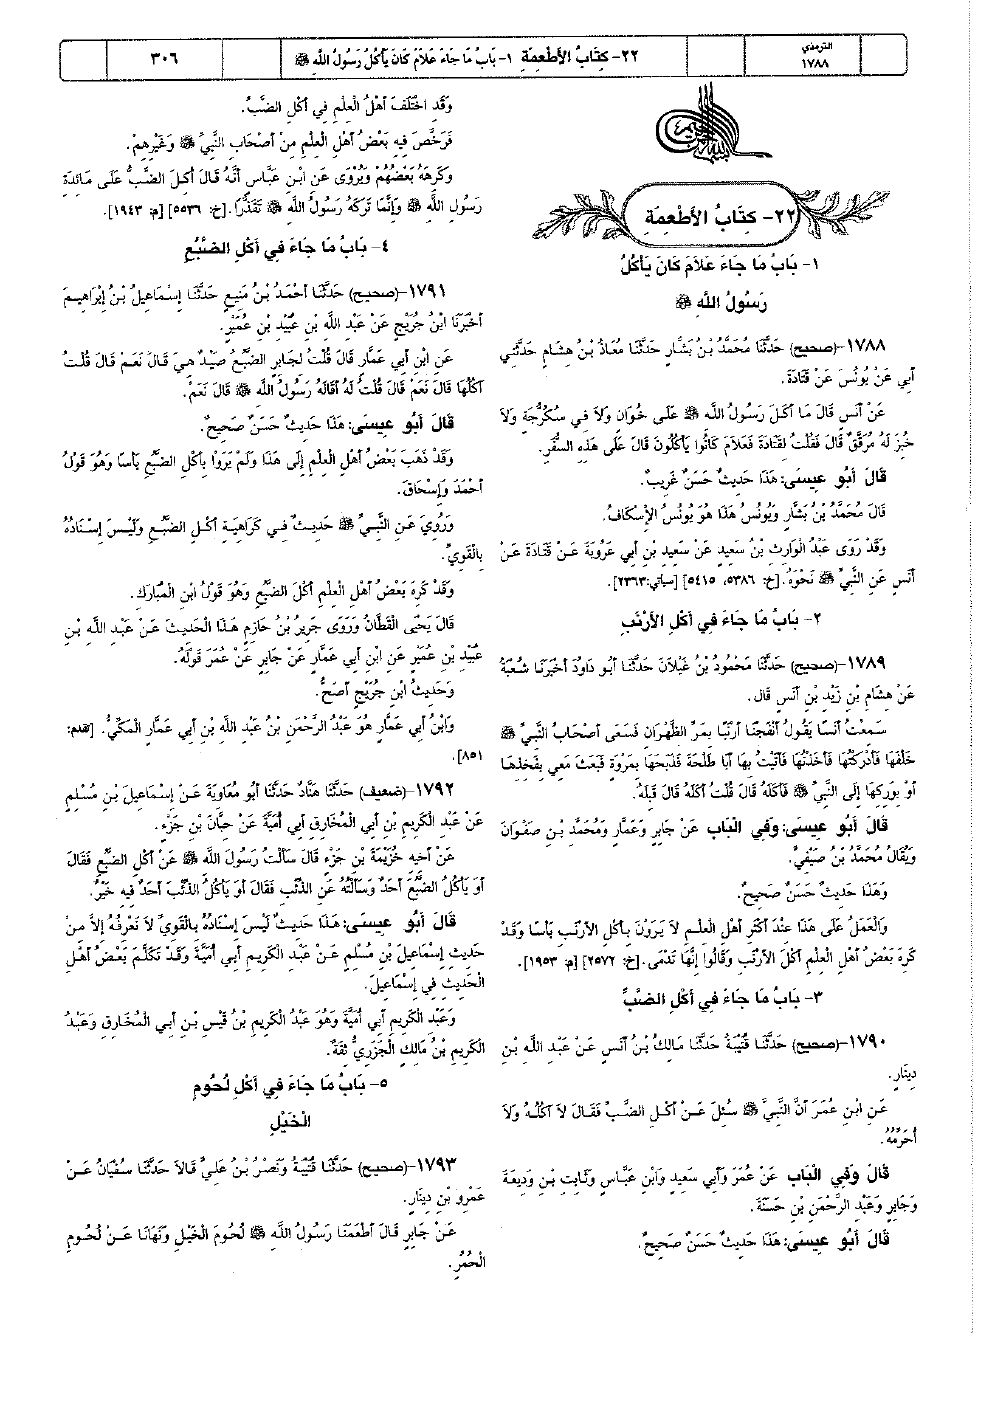 الترمذي
١٧٨٨
٢٢- كِتَابُ الأَطْعِمَةِ ١- بَابُ مَا جَاءَ عَلاَمَ كَانَ يَأْكُلُ رَسُولُ اللَّهِ ﷺ
٣٠٦
٢٢- كِتَابُ الأَطْعِمَةِ
١- بَابُ مَا جَاءَ عَلاَمَ كَانَ يَأْكُلُ
رَسُولُ اللَّهِ ﷺ
١٧٨٨-(صحيح) حَدَّثَنَا مُحَمَّدُ بْنُ بَشَّارٍ حَدَّثَنَا مُعَاذُ بْنُ هِشَامٍ حَدَّثَنِي
أَبِي عَنْ يُونُسَ عَنْ قَتَادَةَ.
عَنْ أَنَسٍ قَالَ مَا أَكَلَ رَسُولُ اللَّهِ ﷺ عَلَى خُوَانٍ وَلاَ فِي سُكُرُّجَةٍ وَلاَ
خُبِزَ لَهُ مُرَقَّقٌ قَالَ فَقُلْتُ لِقَتَادَةَ فَعَلاَمَ كَانُوا يَأْكُلُونَ قَالَ عَلَى هَذِهِ السُّفَرِ.
قَالَ أَبُو عِيسَى: هَذَا حَدِيثٌ حَسَنٌ غَرِيبٌ.
قَالَ مُحَمَّدُ بْنُ بَشَّارٍ وَيُونُسُ هَذَا هُوَ يُونُسُ الإِسْكَافُ.
وَقَدْ رَوَى عَبْدُ الْوَارِثِ بْنُ سَعِيدٍ عَنْ سَعِيدِ بْنِ أَبِي عَرُوبَةَ عَنْ قَتَادَةَ عَنْ
أَنَسٍ عَنِ النَّبِيِّ ﷺ نَحْوَهُ. [خ: ٥٣٨٦، ٥٤١٥] [سيأتي:٢٣٦٣].
٢- بَابُ مَا جَاءَ فِي أَكْلِ الأَرْنَبِ
١٧٨٩-(صحيح) حَدَّثَنَا مَحْمُودُ بْنُ غَيْلاَنَ حَدَّثَنَا أَبُو دَاوُدَ أَخْبَرَنَا شُعْبَةُ
عَنْ هِشَامِ بْنِ زَيْدِ بْنِ أَنَسٍ قَال.
سَمِعْتُ أَنَسًا يَقُولُ أَنْفَجْنَا أَرْنَبًا بِمَرِّ الظَّهْرَانِ فَسَعَى أَصْحَابُ النَّبِيِّ ﷺ
خَلْفَهَا فَأَدْرَكْتُهَا فَأَخَذْتُهَا فَأَتَيْتُ بِهَا أَبَا طَلْحَةَ فَذَبَحَهَا بِمَرْوَةٍ فَبَعَثَ مَعِي بِفَخِذِهَا
أَوْ بِوَرِكِهَا إِلَى النَّبِيِّ ﷺ فَأَكَلَهُ قَالَ قُلْتُ أَكَلَهُ قَالَ قَبِلَهُ.
قَالَ أَبُو عِيسَى: وَفِي الْبَاب عَنْ جَابِرٍ وَعَمَّارٍ وَمُحَمَّدِ بْنِ صَفْوَانَ
وَيُقَالُ مُحَمَّدُ بْنُ صَيْفِيٍّ.
وَهَذَا حَدِيثٌ حَسَنٌ صَحِيحٌ.
وَالْعَمَلُ عَلَى هَذَا عِنْدَ أَكْثَرِ أَهْلِ الْعِلْمِ لاَ يَرَوْنَ بِأَكْلِ الأَرْنَبِ بَأْسًا وَقَدْ
كَرِهَ بَعْضُ أَهْلِ الْعِلْمِ أَكْلَ الأَرْنَبِ وَقَالُوا إِنَّهَا تَدْمَى. [خ: ٢٥٧٢] [م: ١٩٥٣].
٣- بَابُ مَا جَاءَ فِي أَكْلِ الضَّبِّ
١٧٩٠-(صحيح) حَدَّثَنَا قُتَيْبَةُ حَدَّثَنَا مَالِكُ بْنُ أَنَسٍ عَنْ عَبْدِ اللَّهِ بْنِ
دِينَارٍ.
عَنِ ابْنِ عُمَرَ أَنَّ النَّبِيَّ ﷺ سُئِلَ عَنْ أَكْلِ الضَّبِّ فَقَالَ لاَ آكُلُهُ وَلاَ
أُحَرِّمُهُ.
قَالَ وَفِي الْبَاب عَنْ عُمَرَ وَأَبِي سَعِيدٍ وَابْنِ عَبَّاسٍ وَثَابِتِ بْنِ وَدِيعَةَ
وَجَابِرٍ وَعَبْدِ الرَّحْمَنِ بْنِ حَسَنَةَ.
قَالَ أَبُو عِيسَى: هَذَا حَدِيثٌ حَسَنٌ صَحِيحٌ.
وَقَدِ اخْتَلَفَ أَهْلُ الْعِلْمِ فِي أَكْلِ الضَّبِّ.
فَرَخَّصَ فِيهِ بَعْضُ أَهْلِ الْعِلْمِ مِنْ أَصْحَابِ النَّبِيِّ ﷺ وَغَيْرِهِمْ.
وَكَرِهَهُ بَعْضُهُمْ وَيُرْوَى عَنِ ابْنِ عَبَّاسٍ أَنَّهُ قَالَ أُكِلَ الضَّبُّ عَلَى مَائِدَةِ
رَسُولِ اللَّهِ ﷺ وَإِنَّمَا تَرَكَهُ رَسُولُ اللَّهِ ﷺ تَقَذُّرًا. [خ: ٥٥٣٦] [م: ١٩٤٣].
٤- بَابُ مَا جَاءَ فِي أَكْلِ الضَّبُعِ
١٧٩١-(صحيح) حَدَّثَنَا أَحْمَدُ بْنُ مَنِيعٍ حَدَّثَنَا إِسْمَاعِيلُ بْنُ إِبْرَاهِيمَ
أَخْبَرَنَا ابْنُ جُرَيْجٍ عَنْ عَبْدِ اللَّهِ بْنِ عُبَيْدِ بْنِ عُمَيْرٍ.
عَنِ ابْنِ أَبِي عَمَّارٍ قَالَ قُلْتُ لِجَابِرٍ الضَّبُعُ صَيْدٌ هِيَ قَالَ نَعَمْ قَالَ قُلْتُ
آكُلُهَا قَالَ نَعَمْ قَالَ قُلْتُ لَهُ أَقَالَهُ رَسُولُ اللَّهِ ﷺ قَالَ نَعَمْ.
قَالَ أَبُو عِيسَى: هَذَا حَدِيثٌ حَسَنٌ صَحِيحٌ.
وَقَدْ ذَهَبَ بَعْضُ أَهْلِ الْعِلْمِ إِلَى هَذَا وَلَمْ يَرَوْا بِأَكْلِ الضَّبُعِ بَأْسًا وَهُوَ قَوْلُ
أَحْمَدَ وَإِسْحَاقَ.
وَرُوِيَ عَنِ النَّبِيِّ ﷺ حَدِيثٌ فِي كَرَاهِيَةِ أَكْلِ الضَّبُعِ وَلَيْسَ إِسْنَادُهُ
بِالْقَوِيِّ.
وَقَدْ كَرِهَ بَعْضُ أَهْلِ الْعِلْمِ أَكْلَ الضَّبُعِ وَهُوَ قَوْلُ ابْنِ الْمُبَارَكِ.
قَالَ يَحْيَى الْقَطَّانُ وَرَوَى جَرِيرُ بْنُ حَازِمٍ هَذَا الْحَدِيثَ عَنْ عَبْدِ اللَّهِ بْنِ
عُبَيْدِ بْنِ عُمَيْرٍ عَنِ ابْنِ أَبِي عَمَّارٍ عَنْ جَابِرٍ عَنْ عُمَرَ قَوْلَهُ.
وَحَدِيثُ ابْنِ جُرَيْجٍ أَصَحُّ.
وَابْنُ أَبِي عَمَّارٍ هُوَ عَبْدُ الرَّحْمَنِ بْنُ عَبْدِ اللَّهِ بْنِ أَبِي عَمَّارٍ الْمَكِّيُّ. [تقدم:
٨٥١].
١٧٩٢-(ضعيف) حَدَّثَنَا هَنَّادٌ حَدَّثَنَا أَبُو مُعَاوِيَةَ عَنْ إِسْمَاعِيلَ بْنِ مُسْلِمٍ
عَنْ عَبْدِ الْكَرِيمِ بْنِ أَبِي الْمُخَارِقِ أَبِي أُمَيَّةَ عَنْ حِبَّانَ بْنِ جَزْءٍ.
عَنْ أَخِيهِ خُزَيْمَةَ بْنِ جَزْءٍ قَالَ سَأَلْتُ رَسُولَ اللَّهِ ﷺ عَنْ أَكْلِ الضَّبُعِ فَقَالَ
أَوَ يَأْكُلُ الضَّبُعَ أَحَدٌ وَسَأَلْتُهُ عَنِ الذِّئْبِ فَقَالَ أَوَ يَأْكُلُ الذِّئْبَ أَحَدٌ فِيهِ خَيْرٌ.
قَالَ أَبُو عِيسَى: هَذَا حَدِيثٌ لَيْسَ إِسْنَادُهُ بِالْقَوِيِّ لاَ نَعْرِفُهُ إِلاَّ مِنْ
حَدِيثِ إِسْمَاعِيلَ بْنِ مُسْلِمٍ عَنْ عَبْدِ الْكَرِيمِ أَبِي أُمَيَّةَ وَقَدْ تَكَلَّمَ بَعْضُ أَهْلِ
الْحَدِيثِ فِي إِسْمَاعِيلَ.
وَعَبْدِ الْكَرِيمِ أَبِي أُمَيَّةَ وَهُوَ عَبْدُ الْكَرِيمِ بْنُ قَيْسِ بْنِ أَبِي الْمُخَارِقِ وَعَبْدُ
الْكَرِيمِ بْنُ مَالِكٍ الْجَزَرِيُّ ثِقَةٌ.
٥- بَابُ مَا جَاءَ فِي أَكْلِ لُحُومِ
الْخَيْلِ
١٧٩٣-(صحيح) حَدَّثَنَا قُتَيْبَةُ وَنَصْرُ بْنُ عَلِيٍّ قَالاَ حَدَّثَنَا سُفْيَانُ عَنْ
عَمْرِو بْنِ دِينَارٍ.
عَنْ جَابِرٍ قَالَ أَطْعَمَنَا رَسُولُ اللَّهِ ﷺ لُحُومَ الْخَيْلِ وَنَهَانَا عَنْ لُحُومِ
الْحُمُرِ.